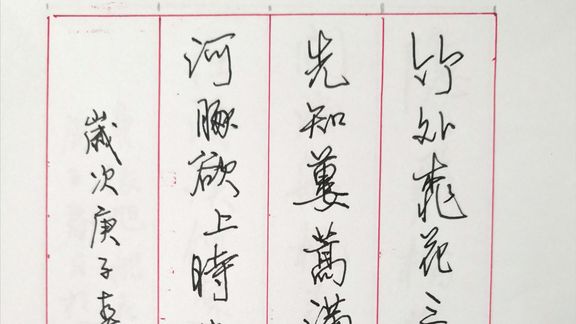 竹外桃花三
先知蔞蒿满
河豚欲上時
歲次庚子